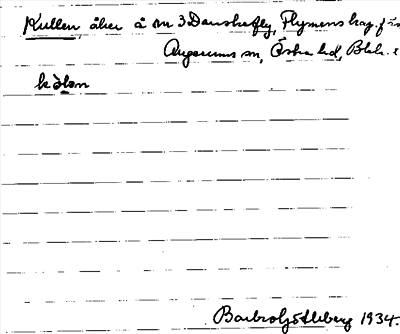 Kullen, åker å nr 3 Danskafly, Flymens kag. förs
Augerums sn, Östra hd, Blek. l
kɷ̀lən
Barbro Götleberg 1934.